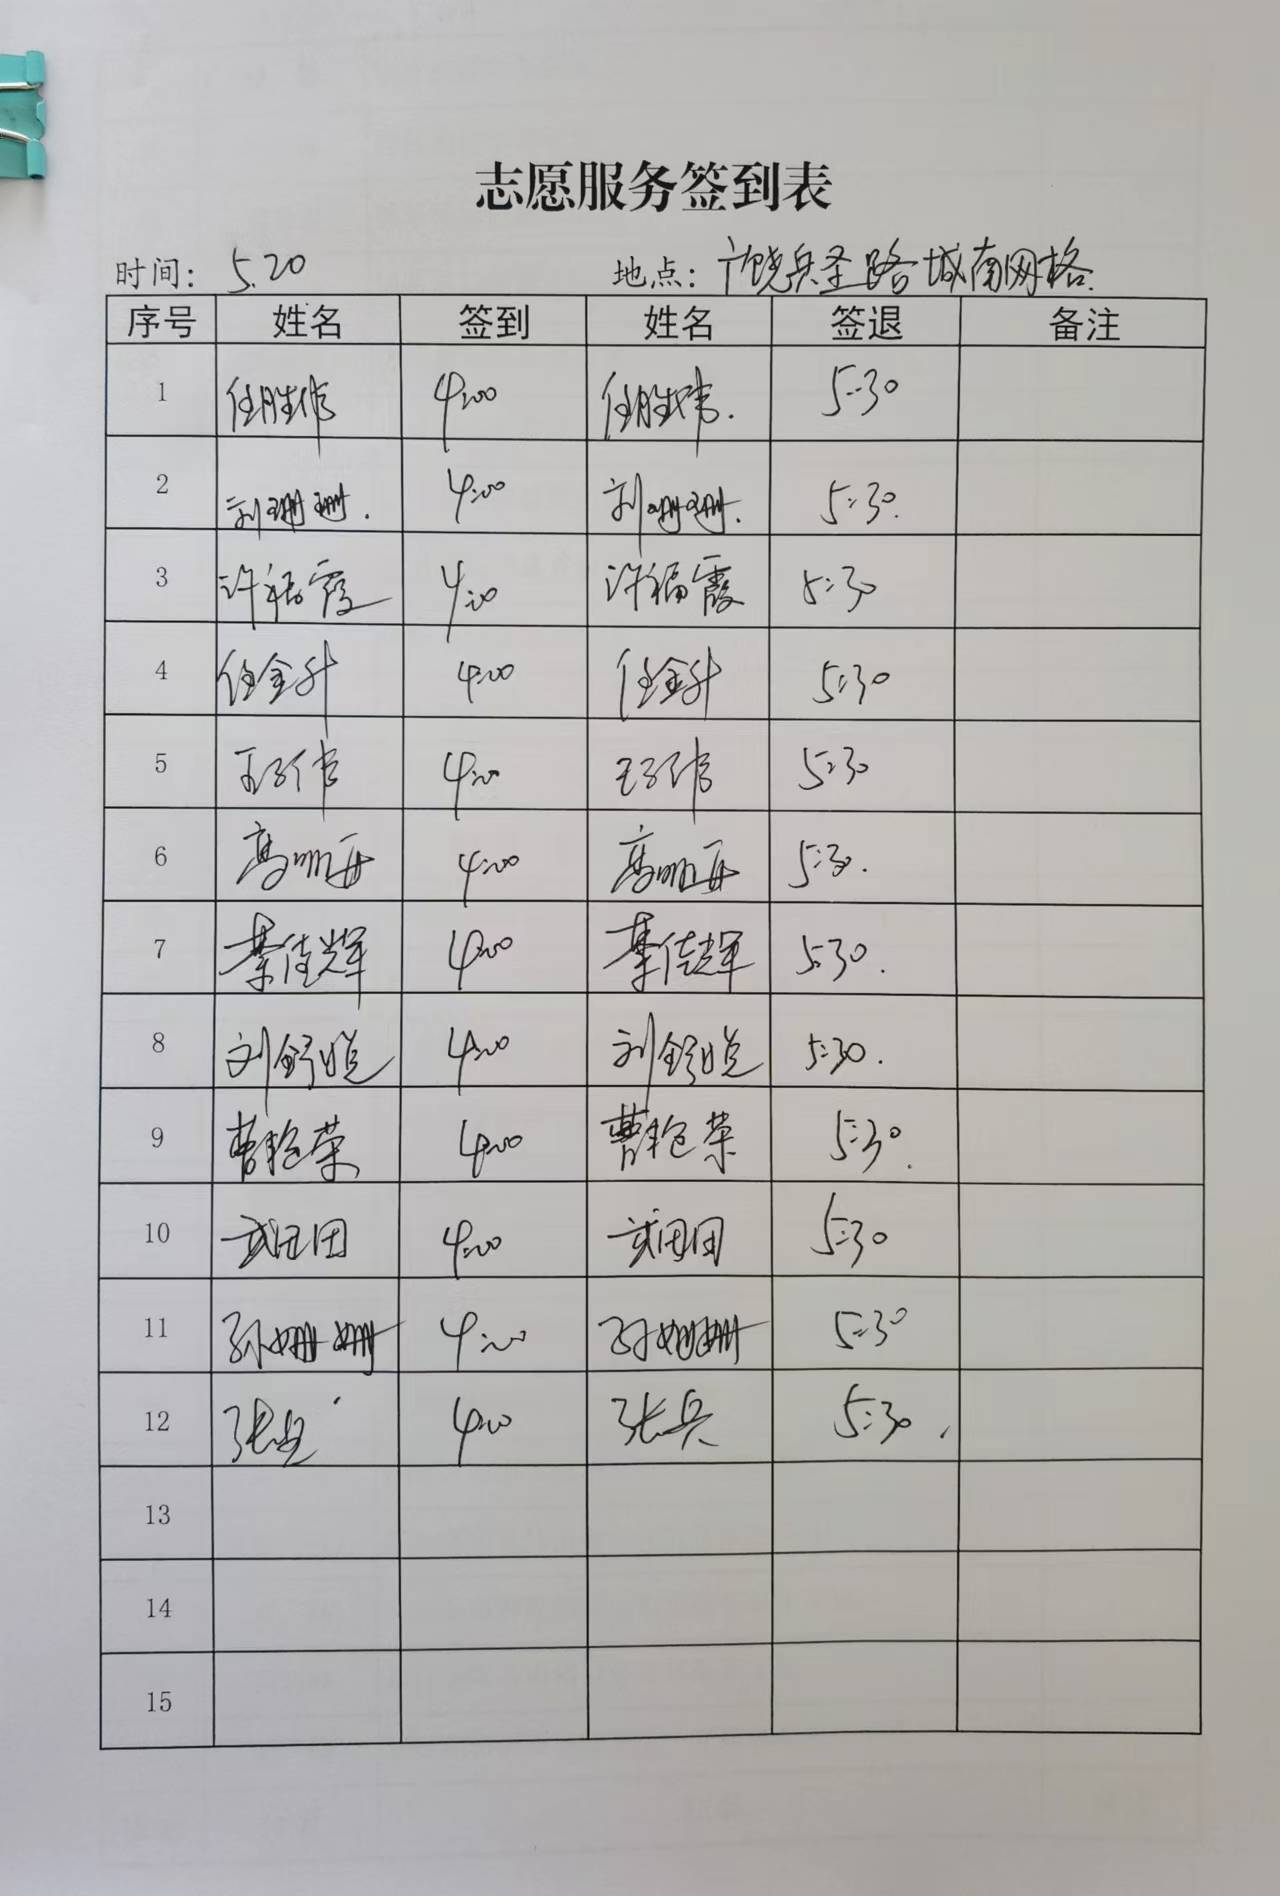 志愿服务签到表
时间：5.20 地点：广饶兵圣路城南网格.
序号 姓名 签到 姓名 签退 备注
1 任胜伟 4:00 任胜伟. 5:30
2 刘珊珊. 4:00 刘珊珊. 5:30.
3 许福霞 4:00 许福霞 5:30
4 任金升 4:00 任金升 5:30
5 王子伟 4:00 王子伟 5:30
6 4:00 5:30.
7 綦佳辉 4:00 綦佳辉 5:30.
8 4:00 5:30.
9 曹艳荣 4:00 曹艳荣 5:30.
10 武团团 4:00 武团团 5:30
11 孙姗姗 4:00 孙姗姗 5:30
12 张兵 4:00 张兵 5:30.
13
14
15